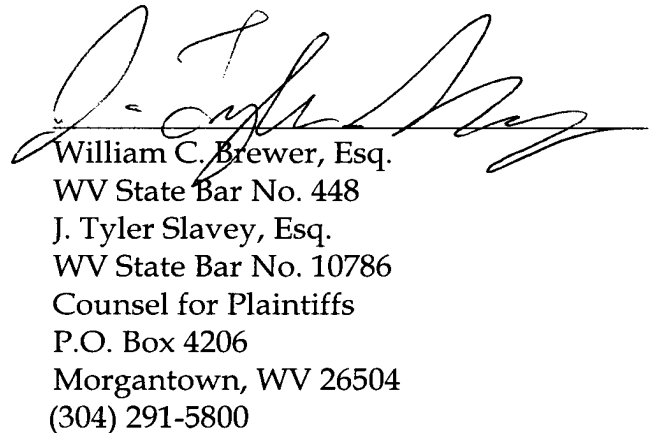 J. Tyler Slavey
William C. Brewer, Esq.
WV State Bar No. 448
J. Tyler Slavey, Esq.
WV State Bar No. 10786
Counsel for Plaintiffs
P.O. Box 4206
Morgantown, WV 26504
(304) 291-5800